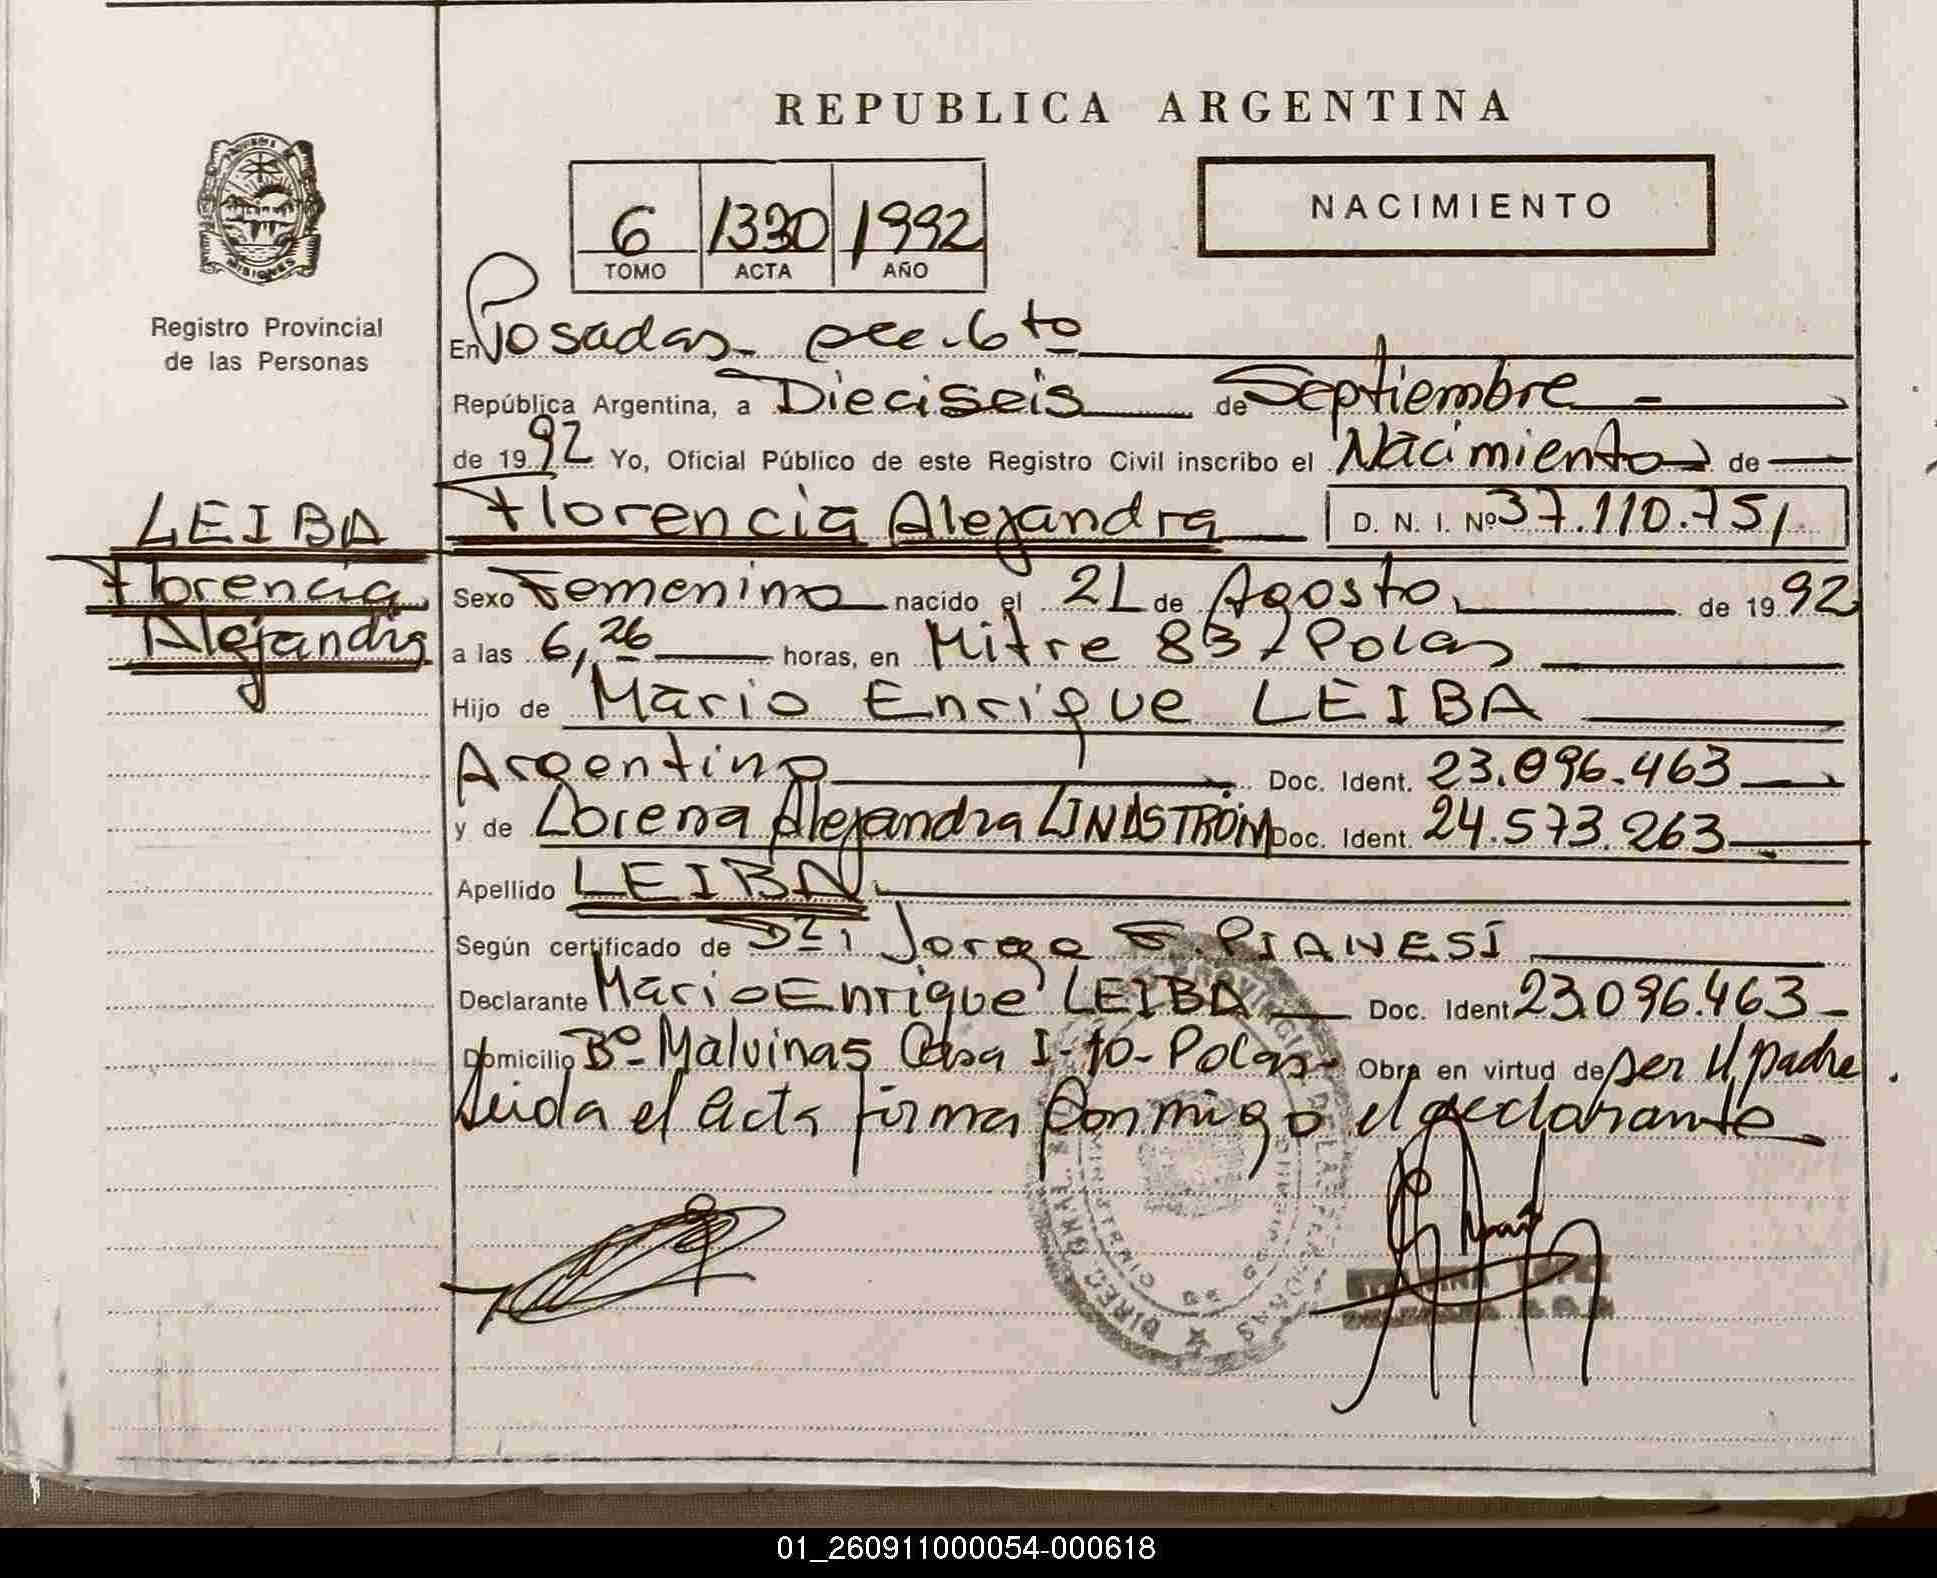 REPUBLICA ARGENTINA
NACIMIENTO
6 1330 1992
TOMO ACTA AÑO
MISIONES
Registro Provincial
de las Personas
En Posadas sec. 6to
República Argentina, a Dieciseis de Septiembre
de 1992 Yo, Oficial Público de este Registro Civil inscribo el Nacimiento de
LEIBA
Florencia
Alejandra
Florencia Alejandra D. N. I. Nº 37.110.751
Sexo Femenino nacido el 21 de Agosto de 1992
a las 6,26 horas, en Mitre 83 Pdas
Hijo de Mario Enrique LEIBA
Argentino Doc. Ident. 23.096.463
y de Lorena Alejandra LINDSTRÖM Doc. Ident. 24.573.263
Apellido LEIBA
Según certificado de Dr. Jorge F. PIANESI
Declarante Mario Enrique LEIBA Doc. Ident 23.096.463
Domicilio Bº Malvinas Casa I-10- Pdas- Obra en virtud de ser el padre.
Leida el acta firma conmigo el declarante
01_260911000054-000618